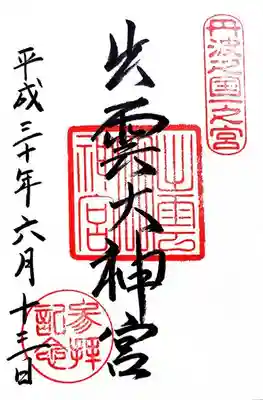 丹波國一之宮
出雲大神宮
出雲大神宮
平成三十年六月十三日
参拝記念